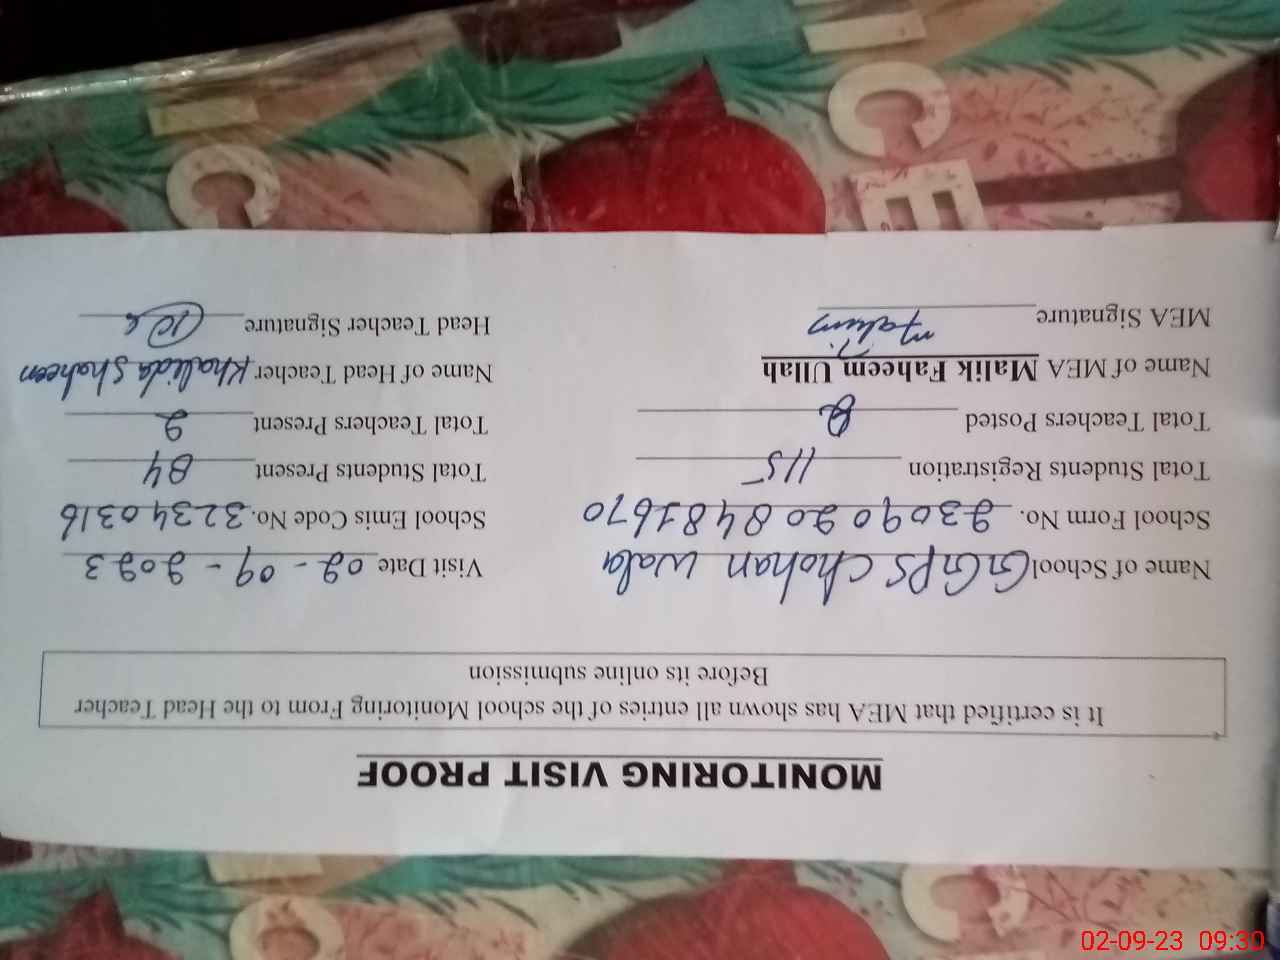 MONITORING VISIT PROOF
It is certified that MEA has shown all entries of the school Monitoring From to the Head Teacher
Before its online submission
Name of School GGPS Chohan wala Visit Date 02-09-2023
School Form No. 23090208481670 School Emis Code No. 32340316
Total Students Registration 115 Total Students Present 84
Total Teachers Posted 2 Total Teachers Present 2
Name of MEA Malik Faheem Ullah Name of Head Teacher Khalida Shaheen
MEA Signature Head Teacher Signature
CE
C
02-09-23 09:30